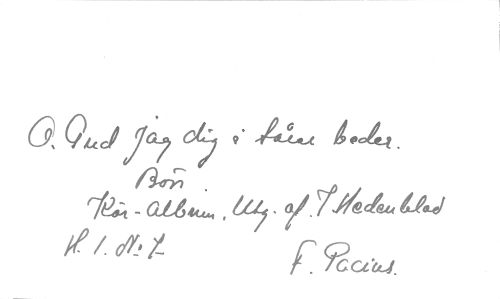 O. Gud jag dig i tårar beder.
Bön.
Kör-Album. Utg. af. I Hedenblad
H. 1. No 7
F. Pacius.